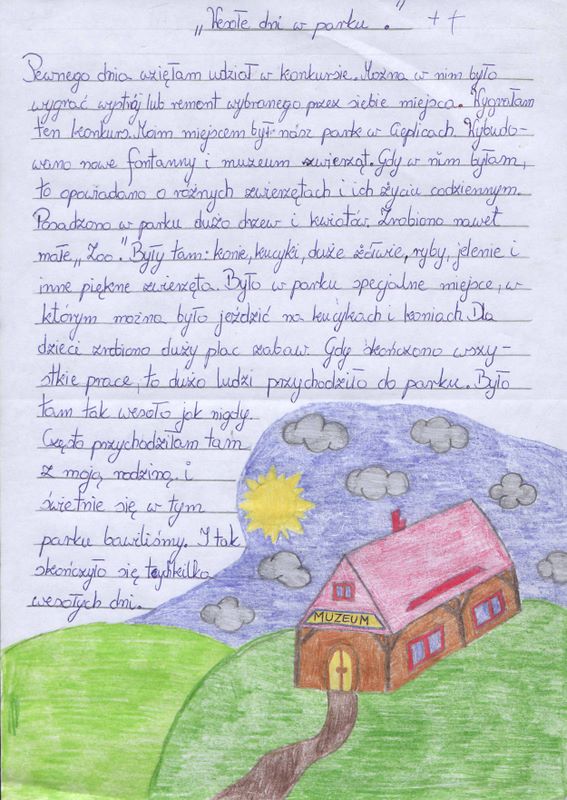 „Wesołe dni w parku."
Pewnego dnia wzięłam udział w konkursie. Można w nim było
wygrać wystrój lub remont wybranego przez siebie miejsca. Wygrałam
ten konkurs. Moim miejscem był nasz park w Cieplicach. Wybudo-
wano nowe fontanny i muzeum zwierząt. Gdy w nim byłam,
to opowiadano o różnych zwierzętach i ich życiu codziennym.
Posadzono w parku dużo drzew i kwiatów. Zrobiono nawet
małe „Zoo." Były tam: konie, kucyki, duże żółwie, ryby, jelenie i
inne piękne zwierzęta. Było w parku specjalne miejsce, w
którym można było jeździć na kucykach i koniach. Dla
dzieci zrobiono duży plac zabaw. Gdy skończono wszy-
stkie prace, to dużo ludzi przychodziło do parku. Było
tam tak wesoło jak nigdy.
Często przychodziłam tam
z moją rodziną, i
świetnie się w tym
parku bawiliśmy. I tak
skończyło się kilka
wesołych dni.
MUZEUM